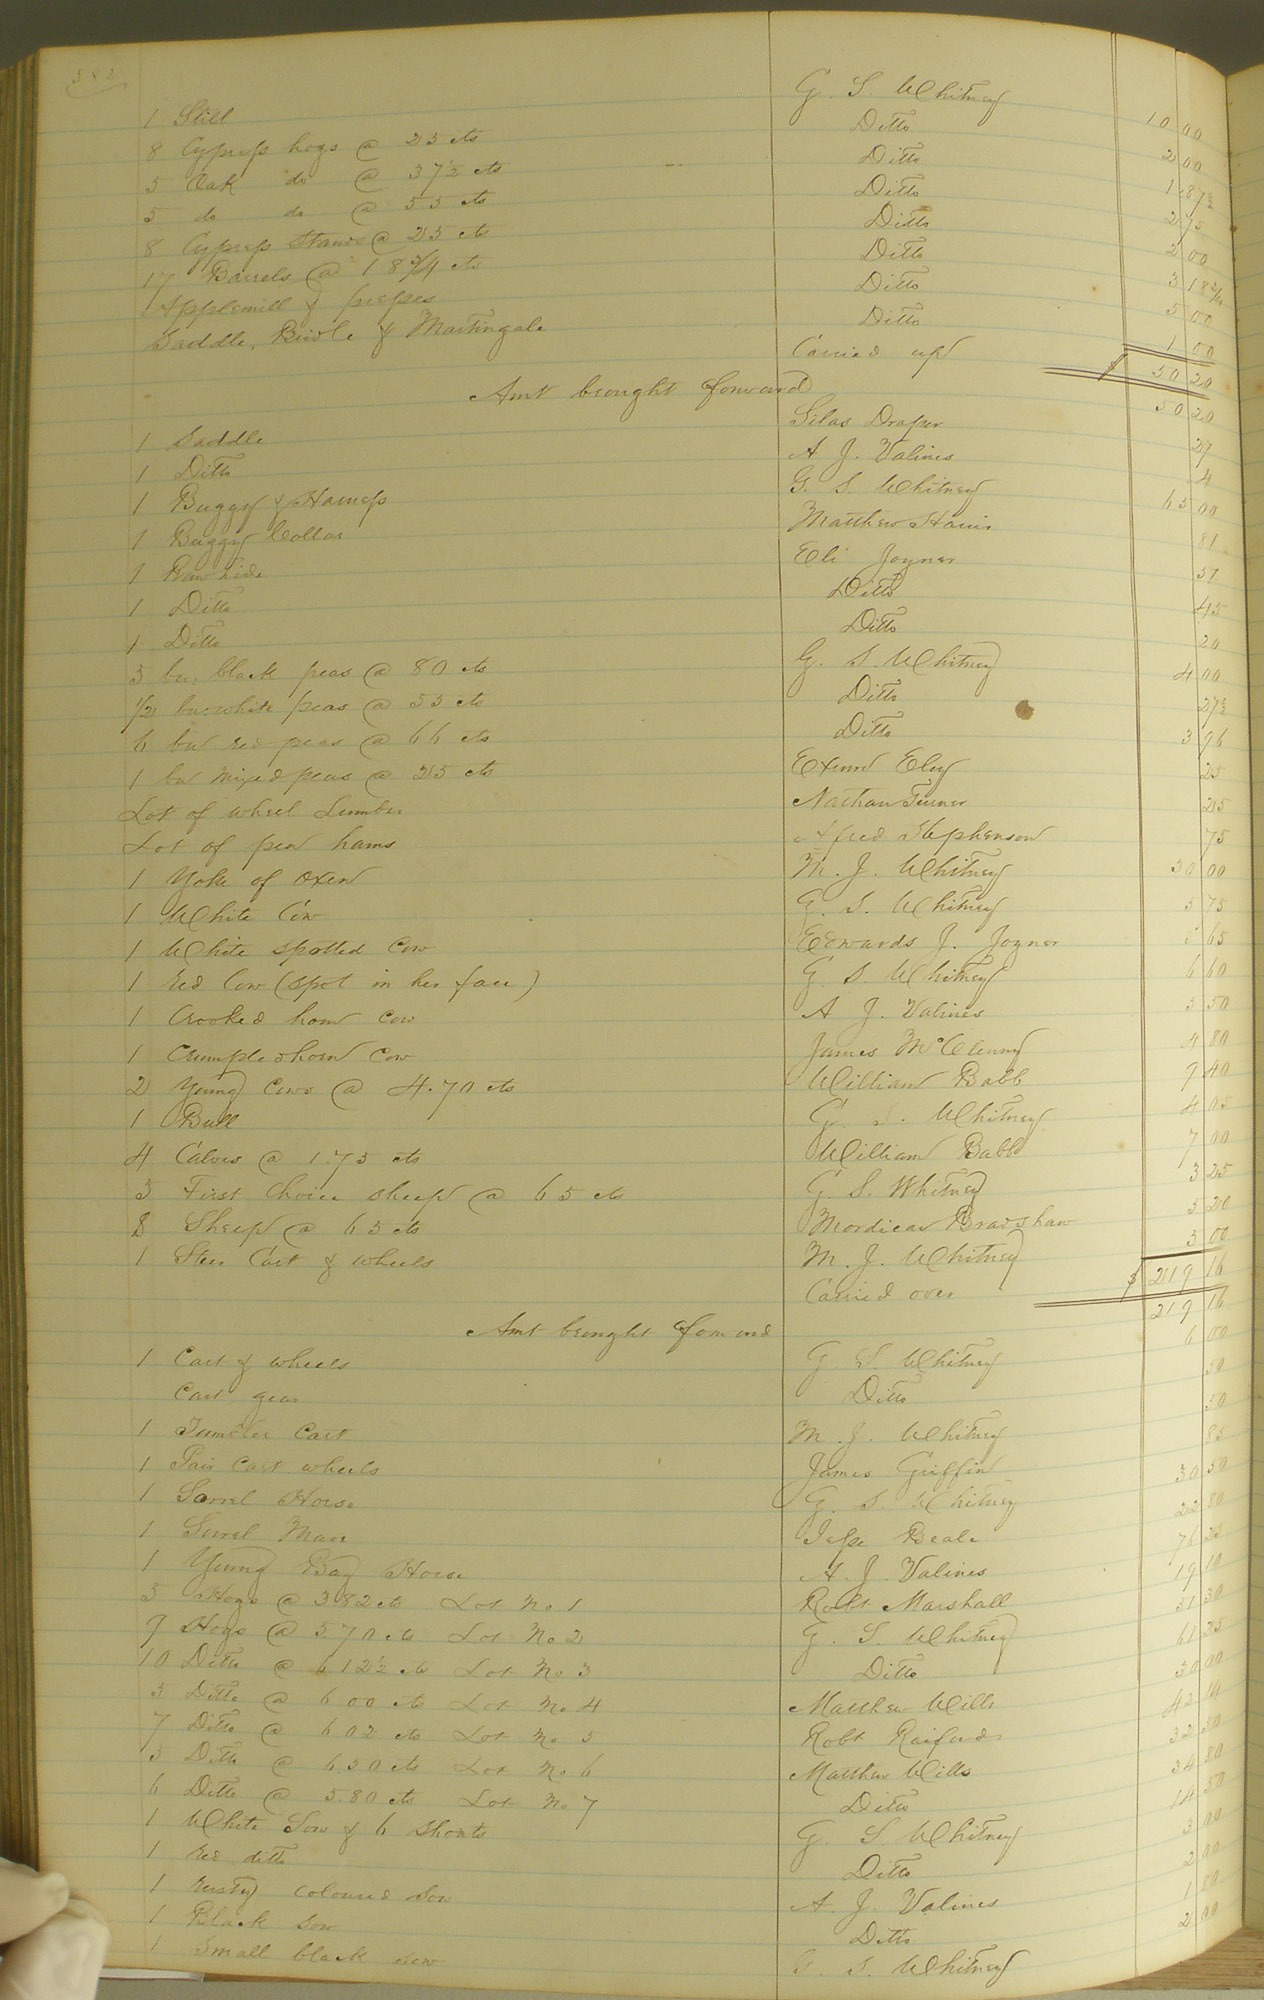 382
1 Still G. S. Whitney 10 00
8 Cypress hogs @ 25 cts Ditto 2 00
5 Oak do @ 37½ cts Ditto 1 87½
5 do do @ 55 cts Ditto 2 75
8 Cypress Stands @ 25 cts Ditto 2 00
17 Barrels @ 18¾ cts Ditto 3 18¾
1 Applemill & presses Ditto 5 00
Saddle, Bridle & Martingale Ditto 1 00
Carried up $ 50 20
Amt brought forward 50 20
1 Saddle Silas Draper 27
1 Ditto A J. Valines 4
1 Buggy & Harness G. S. Whitney 65 00
1 Buggy Collar Matthew Harris 81
1 Raw hide Eli Joyner 51
1 Ditto Ditto 45
1 Ditto Ditto 20
5 bu. black peas @ 80 cts G. S. Whitney 4 00
1/2 bu white peas @ 55 cts Ditto 27½
6 bu red peas @ 66 cts Ditto 3 96
1 bu mixed peas @ 25 cts Exum Eley 25
Lot of wheel Lumber Nathan Turner 25
Lot of pea hams Alfred Stephenson 75
1 Yoke of Oxen M. J. Whitney 30 00
1 White Cow G. S. Whitney 5 75
1 White spotted Cow Edwards J. Joyner 65
1 red Cow (spot in her face) G. S. Whitney 6 60
1 Crooked horn Cow A J. Valines 5 50
1 Crumpled horn Cow James McClenny 4 80
2 Young Cows @ 4.70 cts William Babb 9 40
1 Bull G. S. Whitney 4 05
4 Calves @ 1.75 cts William Babb 7 00
5 First Choice sheep @ 65 cts G. S. Whitney 3 25
8 Sheep @ 65 cts Mordicai Bradshaw 5 20
1 Steer Cart & wheels M. J. Whitney 5 00
Carried over $ 219 16
Amt brought forward 219 16
1 Cart & wheels G. S. Whitney 6 00
Cart gear Ditto 50
1 Tumbler Cart M. J. Whitney 50
1 Pair Cart wheels James Griffin 85
1 Sorrel Horse G. S. Whitney 30 50
1 Sorrel Mare Jesse Beale 22 80
1 Young Bay Horse A. J. Valines 76 25
5 Hogs @ 3 82 cts Lot No 1 Robt Marshall 19 10
9 Hogs @ 5.70 cts Lot No 2 G. S. Whitney 51 30
10 Ditto @ 6 12½ cts Lot No 3 Ditto 61 25
5 Ditto @ 6 00 cts Lot No 4 Matthew Wills 30 00
7 Ditto @ 6 02 cts Lot No 5 Robt Raiford 42 14
5 Ditto @ 6.50 cts Lot No 6 Matthew Wills 32 50
6 Ditto @ 5.80 cts Lot No 7 Ditto 34 80
1 White Sow & 6 shoats G. S. Whitney 14 50
1 red ditto Ditto 3 00
1 rusty coloured Sow A. J. Valines 2 00
1 Black Sow Ditto 1 80
1 Small black sow G. S. Whitney 2 00